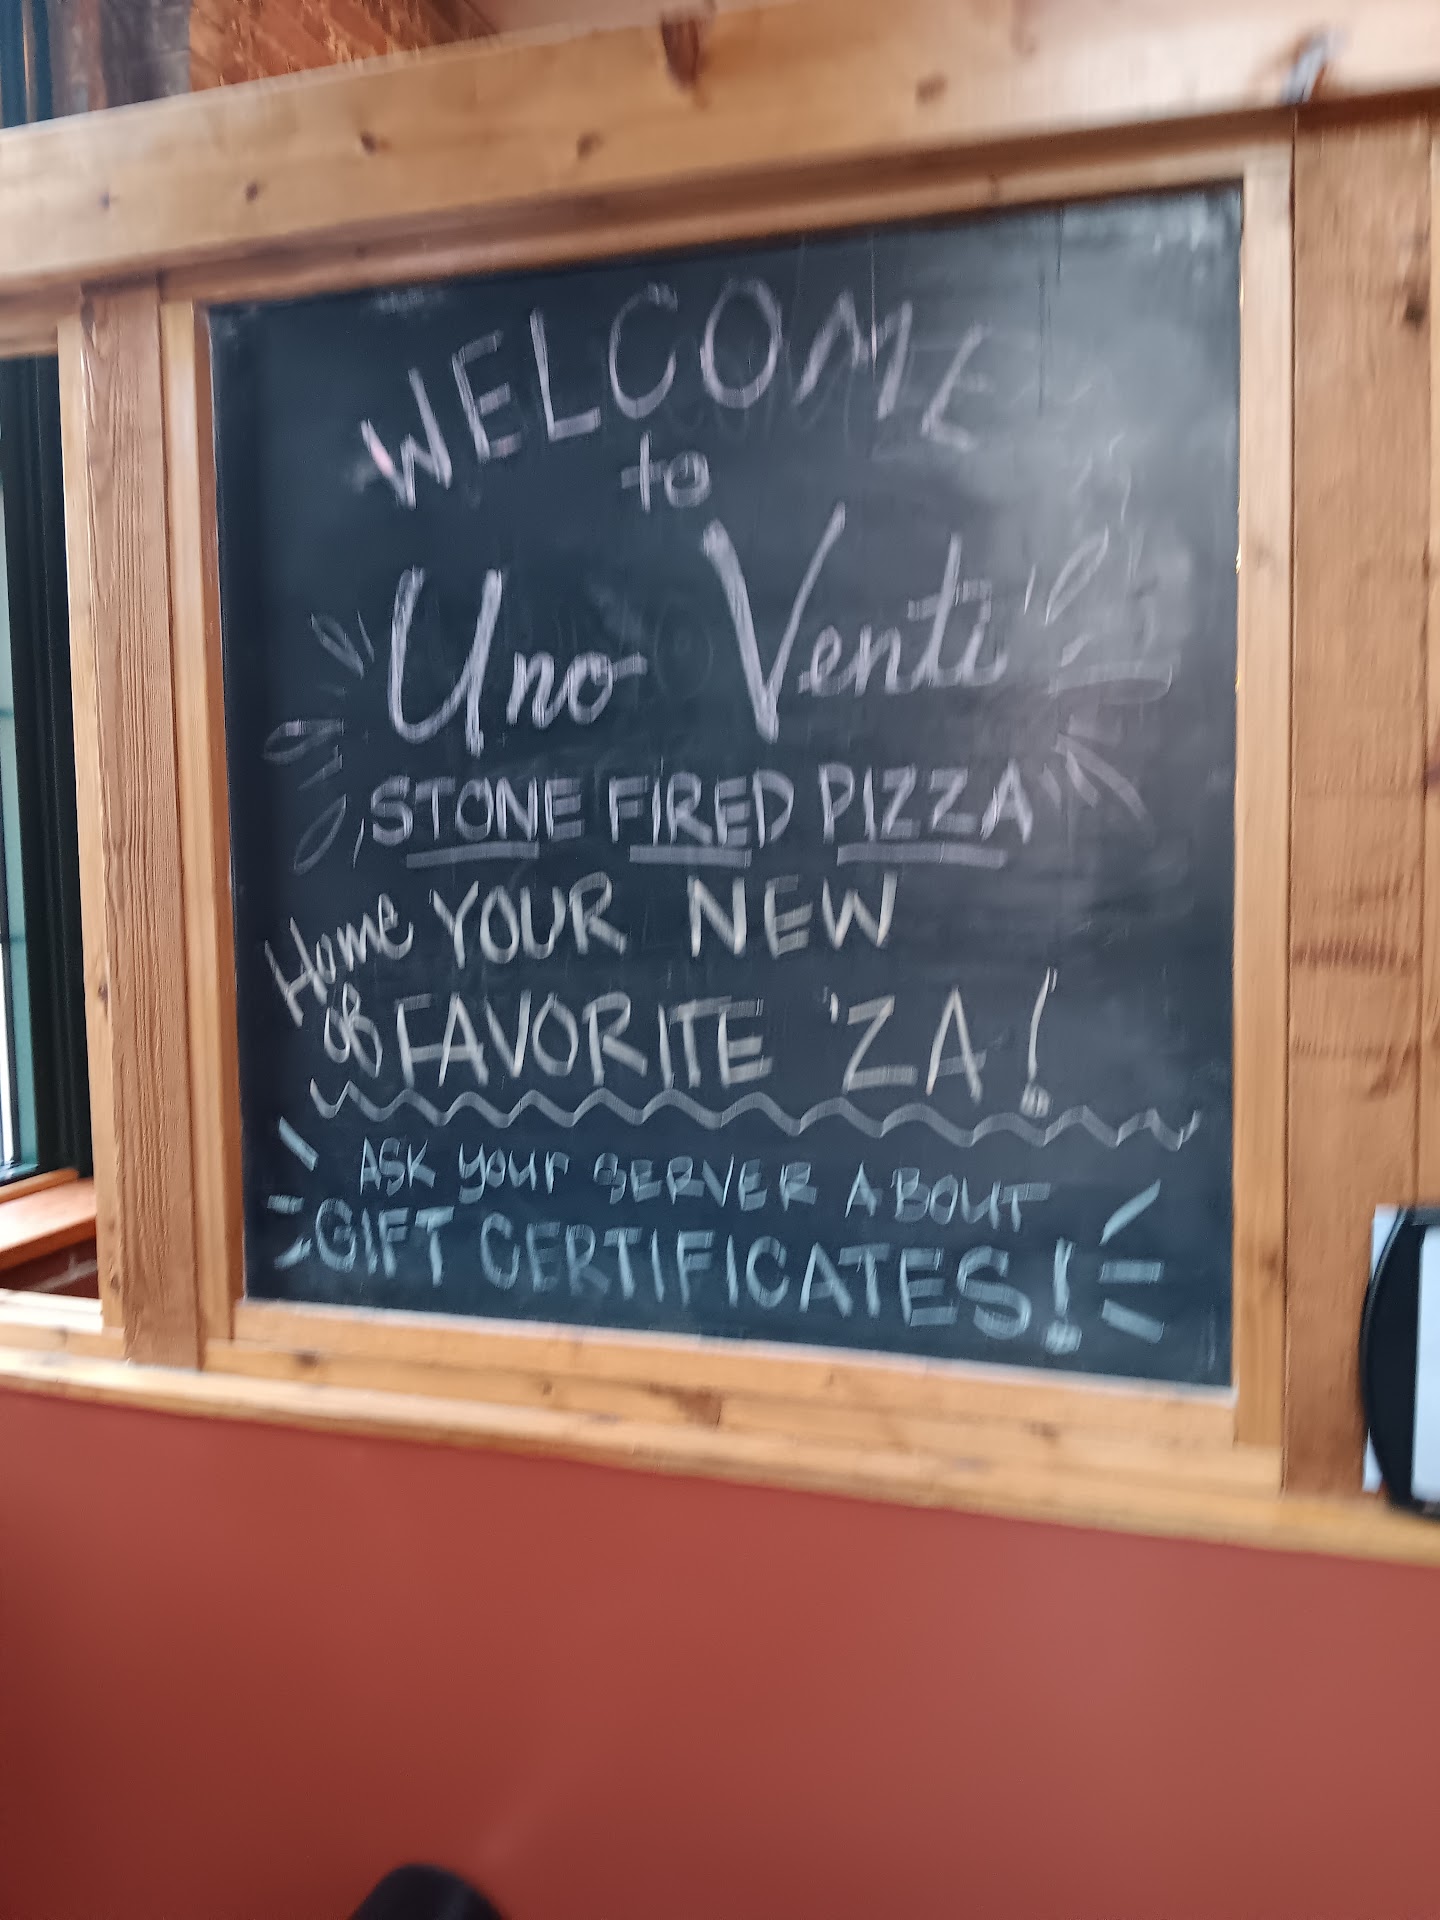 WELCOME
to
Uno Venti
STONE FIRED PIZZA
Home of YOUR NEW
FAVORITE 'ZA!
ASK your SERVER ABOUT
GIFT CERTIFICATES!